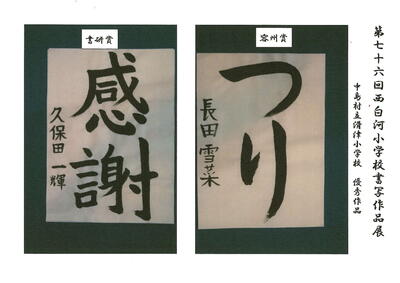 第七十六回西白河小学校書写作品展
中島村立滑津小学校　優秀作品
容州賞
つり
長田雪菜
書研賞
感謝
久保田一輝